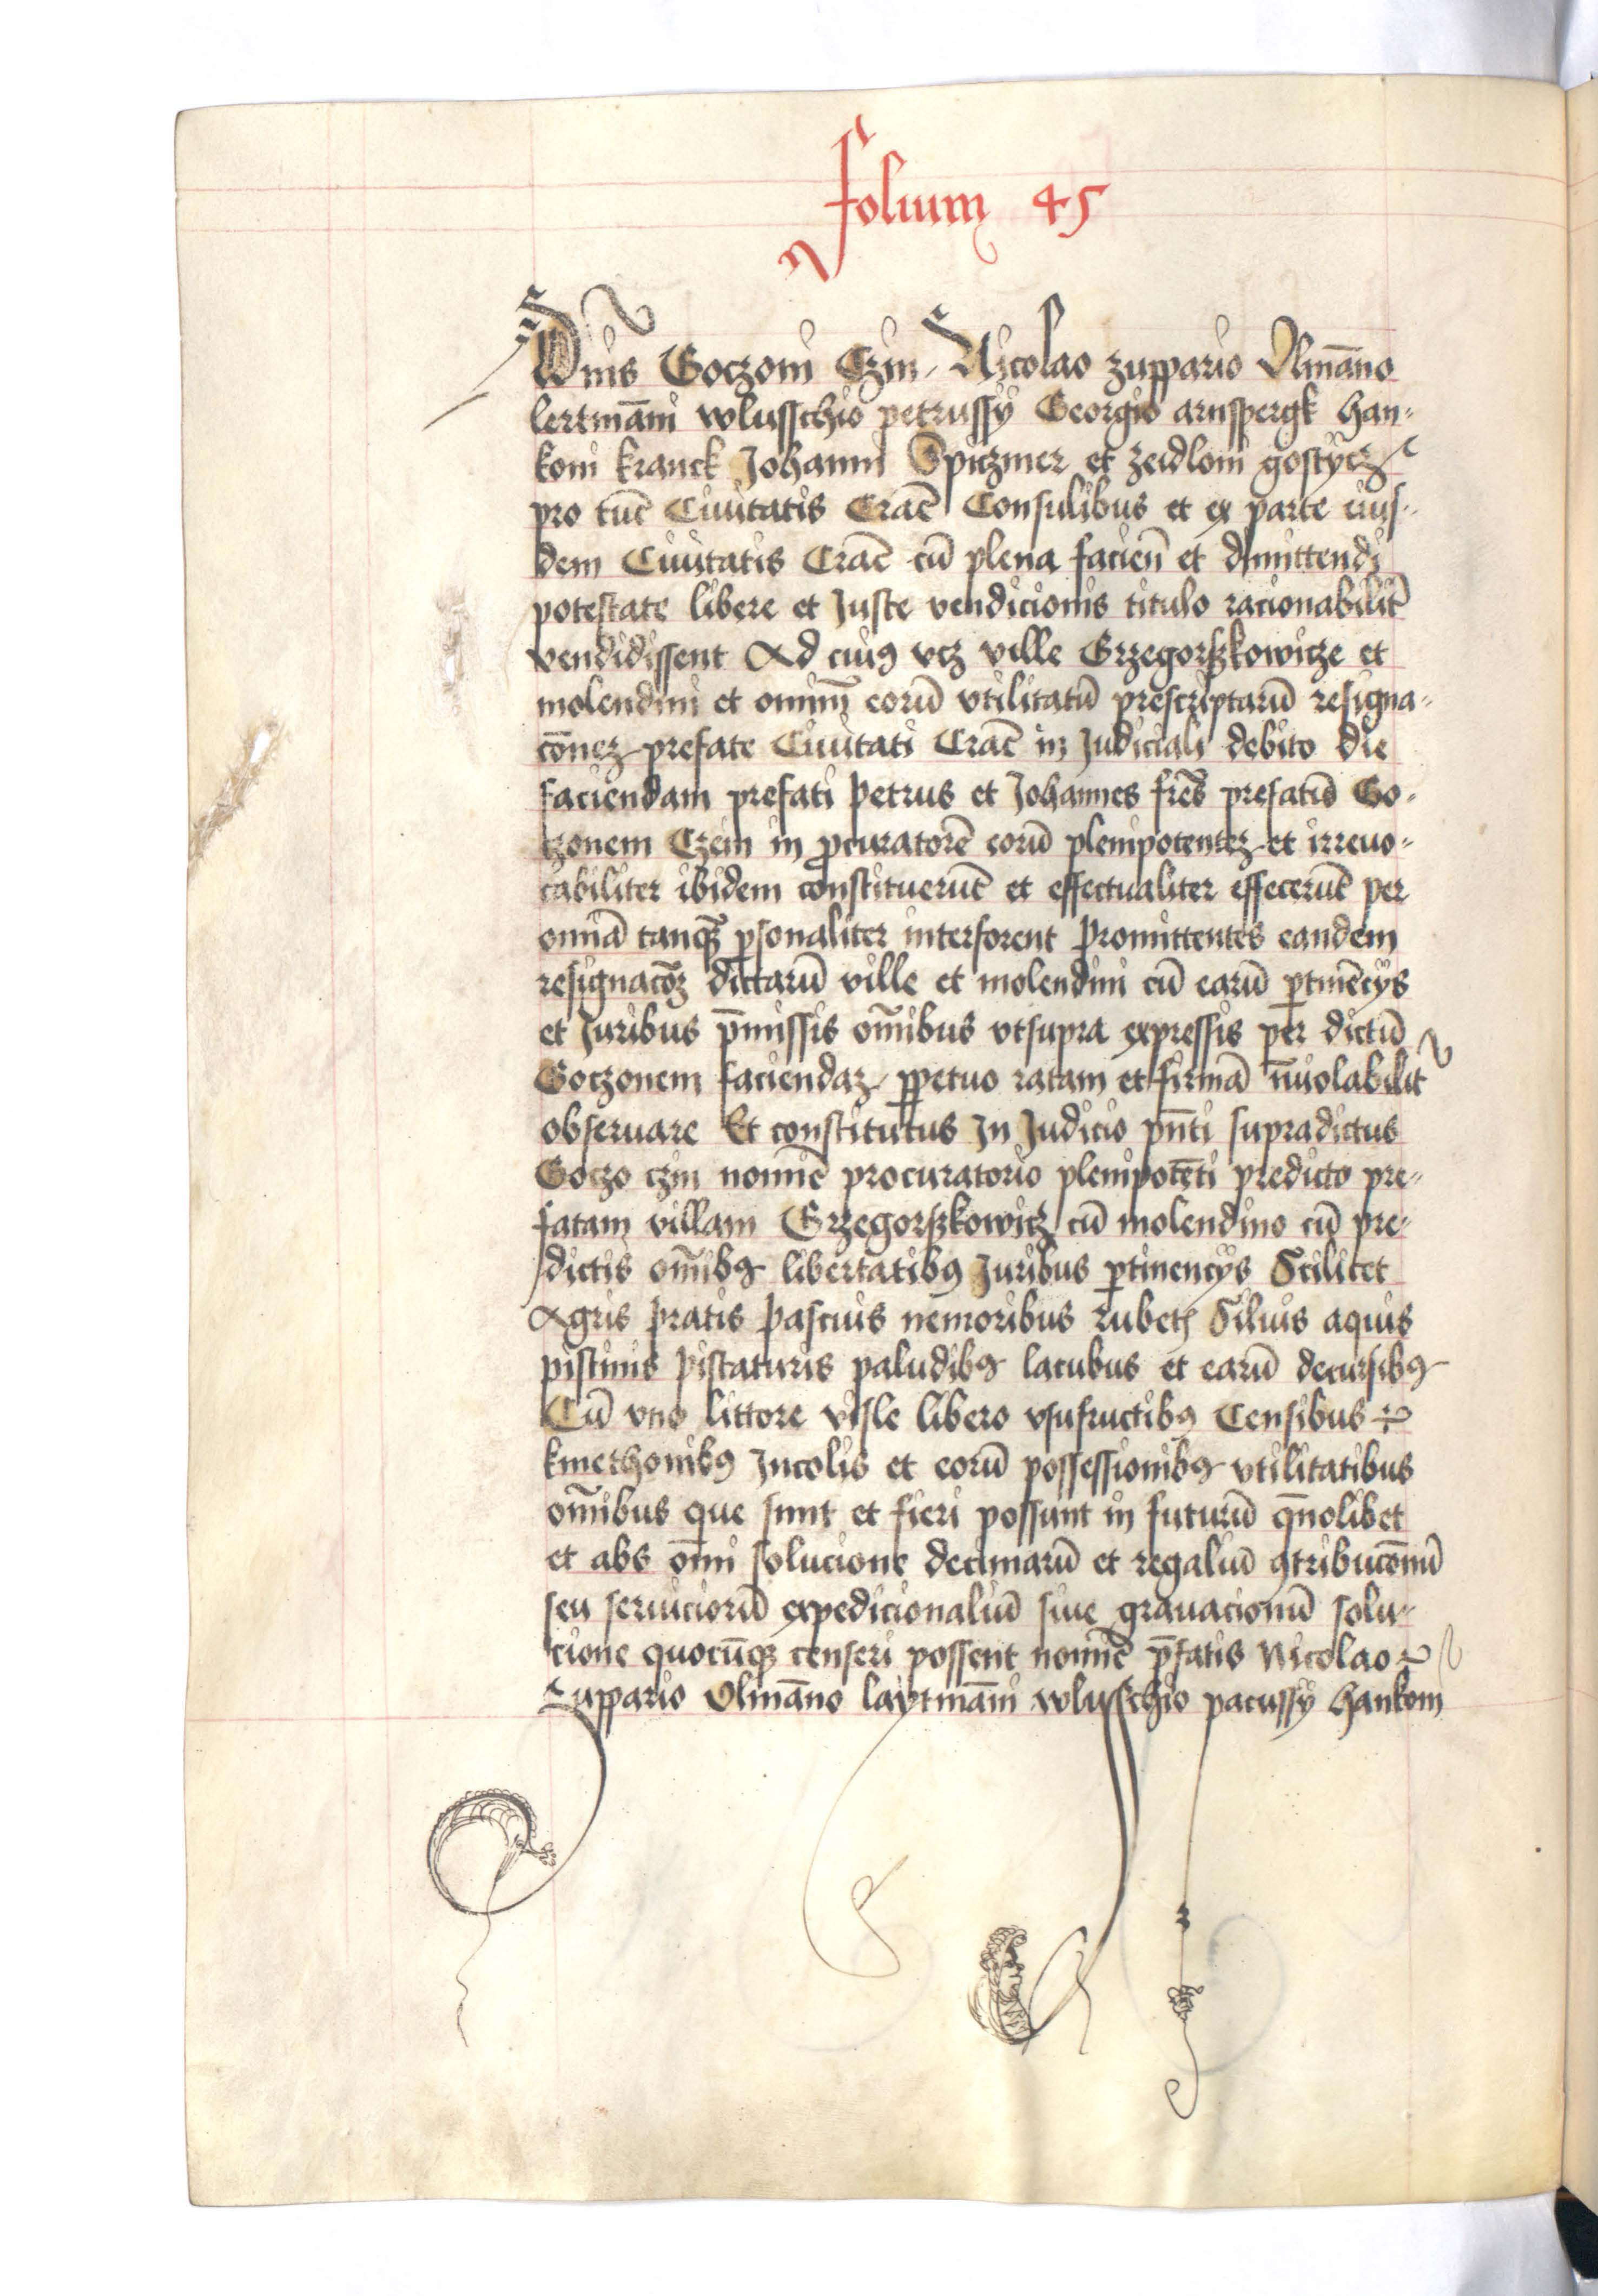 Folium 45
Dnis Goczoni Czin Nicolao zuppario Ulmāno
lertmāni wlusschio petrussÿ Georgio arnspergk han-
koni kranck Johanni Spiczmer et zeidloni gostÿcz
pro tūc Ciuitatis Crac̄ Consulibus et ex parte eius-
dem Ciuitatis Crac̄ cū plena facien̄ et dimittendi
potestate libere et Juste vendicionis titulo racionabilit̄
vendidissent Ad cuiꝯ vcz ville Grzegorszkowicze et
molendini et omniū eorū vtilitatū prescriptarū resigna-
cōnez prefate Ciuitati Crac̄ in Judiciali debito die
faciendam prefati Petrus et Johannes fr̄es prefatū Go-
czonem Czein in ꝓcuratorē eorū plenipotentez et irreuo-
cabiliter ibidem constituerūt et effectualiter effecerūt per
omnia tanqꝫ ꝑsonaliter interforent Promittentes eandem
resignacōꝫ dictarū ville et molendini cū earū ꝑtinēcÿs
et Juribus p̄missis om̄ibus vtsupra expressis per dictū
Goczonem faciendaz ꝑpetuo ratam et firmā īuiolabilit̄
obseruare Et constitutus In Judicio pn̄ti supradictus
Goczo czin nomīe procuratorio plenipotēti predicto pre-
fatam villam Grzegorszkowicz cū molendino cū pre-
dictis om̄ibꝯ libertatibꝯ Juribus ꝑtinencÿs Scilicet
Agris Pratis Pascuis nemoribus rubetꝭ Siluis aquis
piscinis Piscaturis paludibꝯ lacubus et earū decursibꝯ
Cū vno littore visle libero vsufructibꝯ Censibus
kmethonibꝯ Incolis et eorū possessionibꝯ vtilitatibus
om̄ibus que sunt et fieri possunt in futurū qm̄olibet
et abs om̄i solucione decimarū et regaliū ꝯtribucōnū
seu seruiciorū expedicionaliū siue grauacionū solu-
cione quocūqꝫ censeri possent nomīe p̄fatis Nicolao
Zuppario Vlmāno laÿtmāni wlusschio pacussÿ hankoni